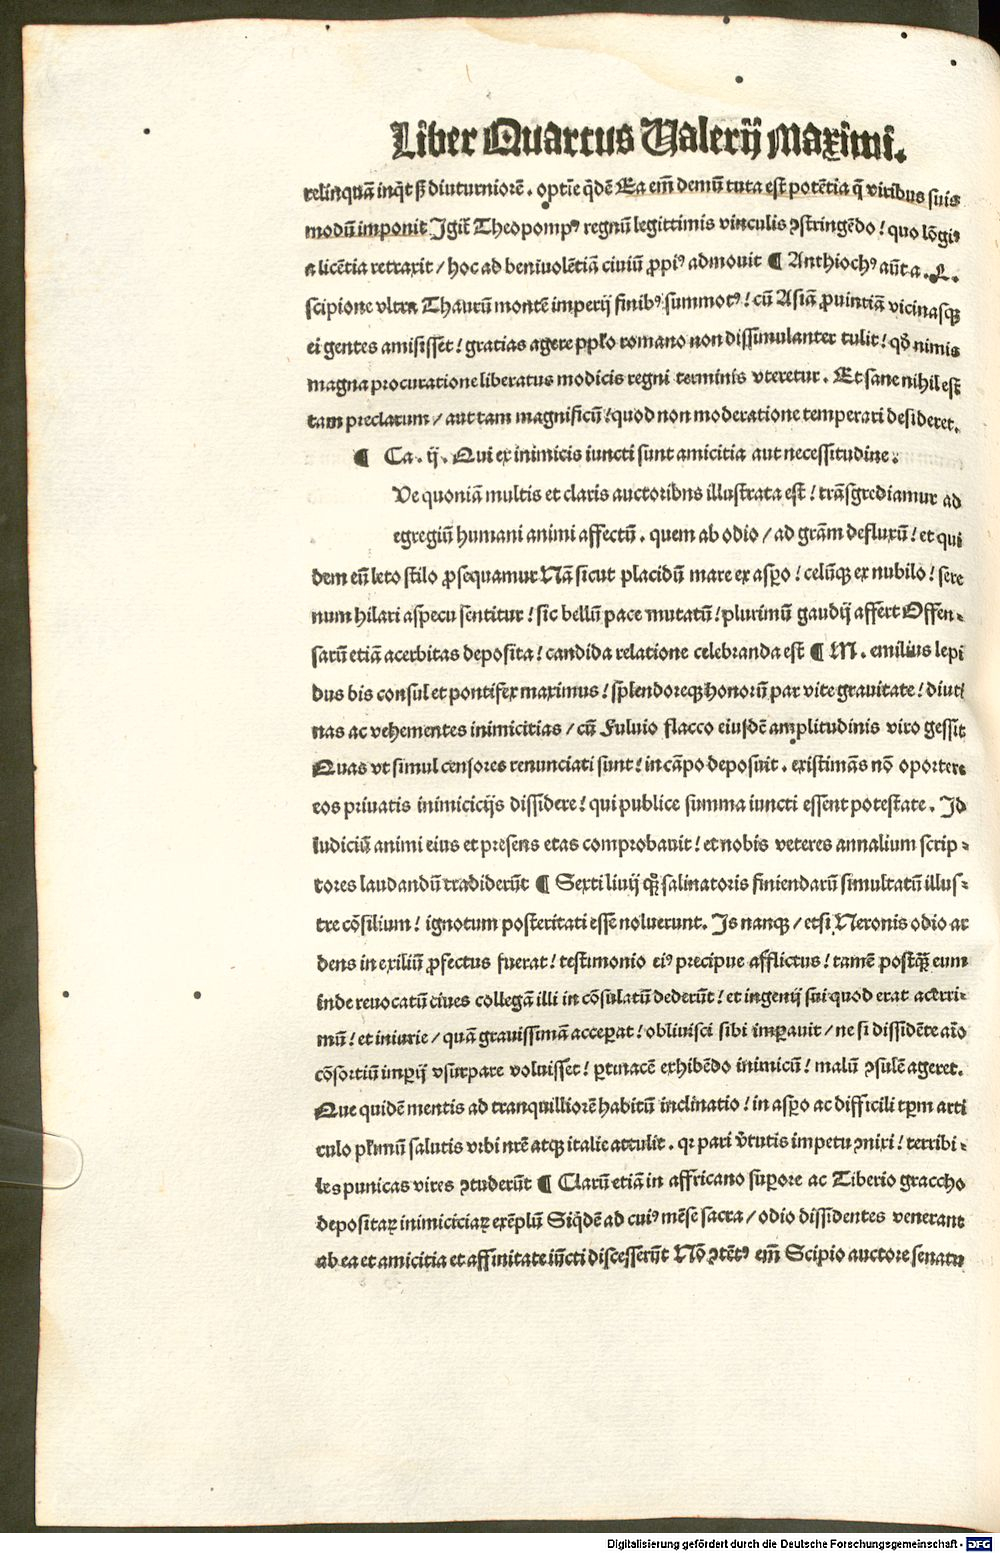 Liber Quartus Ualerij Maximi.
relinquā inq̄t sꝫ diuturniorē. optīe q̄dē Ea em̄ demū tuta est potētia q̄ viribus suis
modū imponit Igit̄ Theopompꝰ regnū legittimis vinculis ꝯstringēdo! quo lōgiꝰ
a licētia retraxit / hoc ad beniuolētiā ciuiū ꝓpiꝰ admouit ¶ Anthiochꝰ aūt a. L.
scipione vltra Thaurū montē imperij finibꝰ summotꝰ! cū Asiā ꝓuintiā vicinasqꝫ
ei gentes amisisset! gratias agere ppl̓o romano non dissimulanter tulit! qd̓ nimis
magna procuratione liberatus modicis regni terminis vteretur. Et sane nihil est
tam preclarum / aut tam magnificū! quod non moderatione temperari desideret.
¶ Ca. ij. Qui ex inimicis iuncti sunt amicitia aut necessitudine.
Ve quoniā multis et claris auctoribns illustrata est! trāsgrediamur ad
egregiū humani animi affectū. quem ab odio / ad gr̄am defluxū! et qui
dem eū leto stilo ꝓsequamur Nā sicut placidū mare ex asꝑo! celūqꝫ ex nubilo! sere
num hilari aspecu sentitur! sic bellū pace mutatū! plurimū gaudij affert Offen-
sarū etiā acerbitas deposita! candida relatione celebranda est ¶ M. emilius lepi
dus bis consul et pontifex maximus! splendoreqꝫ honorū par vite grauitate! diuti
nas ac vehementes inimicitias / cū Fuluio flacco eiusdē amplitudinis viro gessit
Quas vt simul censores renunciati sunt! in cāpo deposuit. existimās nō oportere
eos priuatis inimicicijs dissidere! qui publice summa iuncti essent potestate. Id
iudiciū animi eius et presens etas comprobauit! et nobis veteres annalium scrip-
tores laudandū tradiderūt ¶ Sexti liuij qꝫ salinatoris finiendarū simultatū illus-
tre cōsilium! ignotum posteritati esse noluerunt. Is nanqꝫ / etsi Neronis odio ar
dens in exiliū ꝓfectus fuerat! testimonio eiꝰ precipue afflictus! tamē postqꝫ eum
inde reuocatū ciues collegā illi in cōsulatū dederūt! et ingenij sui quod erat acerri-
mū! et iniurie / quā grauissimā acceꝑat! obliuisci sibi imꝑauit / ne si dissidēte aīo
cōsortiū imꝑij vsurpare voluisset! ꝑtinacē exhibēdo inimicū! malū ꝯsulē ageret.
Que quidē mentis ad tranquilliorē habitū inclinatio! in asꝑo ac difficili tꝑm arti
culo pl̓imū salutis vrbi nr̄e atqꝫ italie attulit. qr pari v̓tutis impetu ꝯnixi! terribi-
les punicas vires ꝯtuderūt ¶ Clarū etiā in affricano suꝑore ac Tiberio graccho
depositaꝝ inimiciciaꝝ exēplū Siq̄dē ad cuiꝰ mēse sacra / odio dissidentes venerant
ab ea et amicitia et affinitate iūcti discesserūt Nō ꝯtētꝰ em̄ Scipio auctore senatu
Digitalisierung gefördert durch die Deutsche Forschungsgemeinschaft - DFG